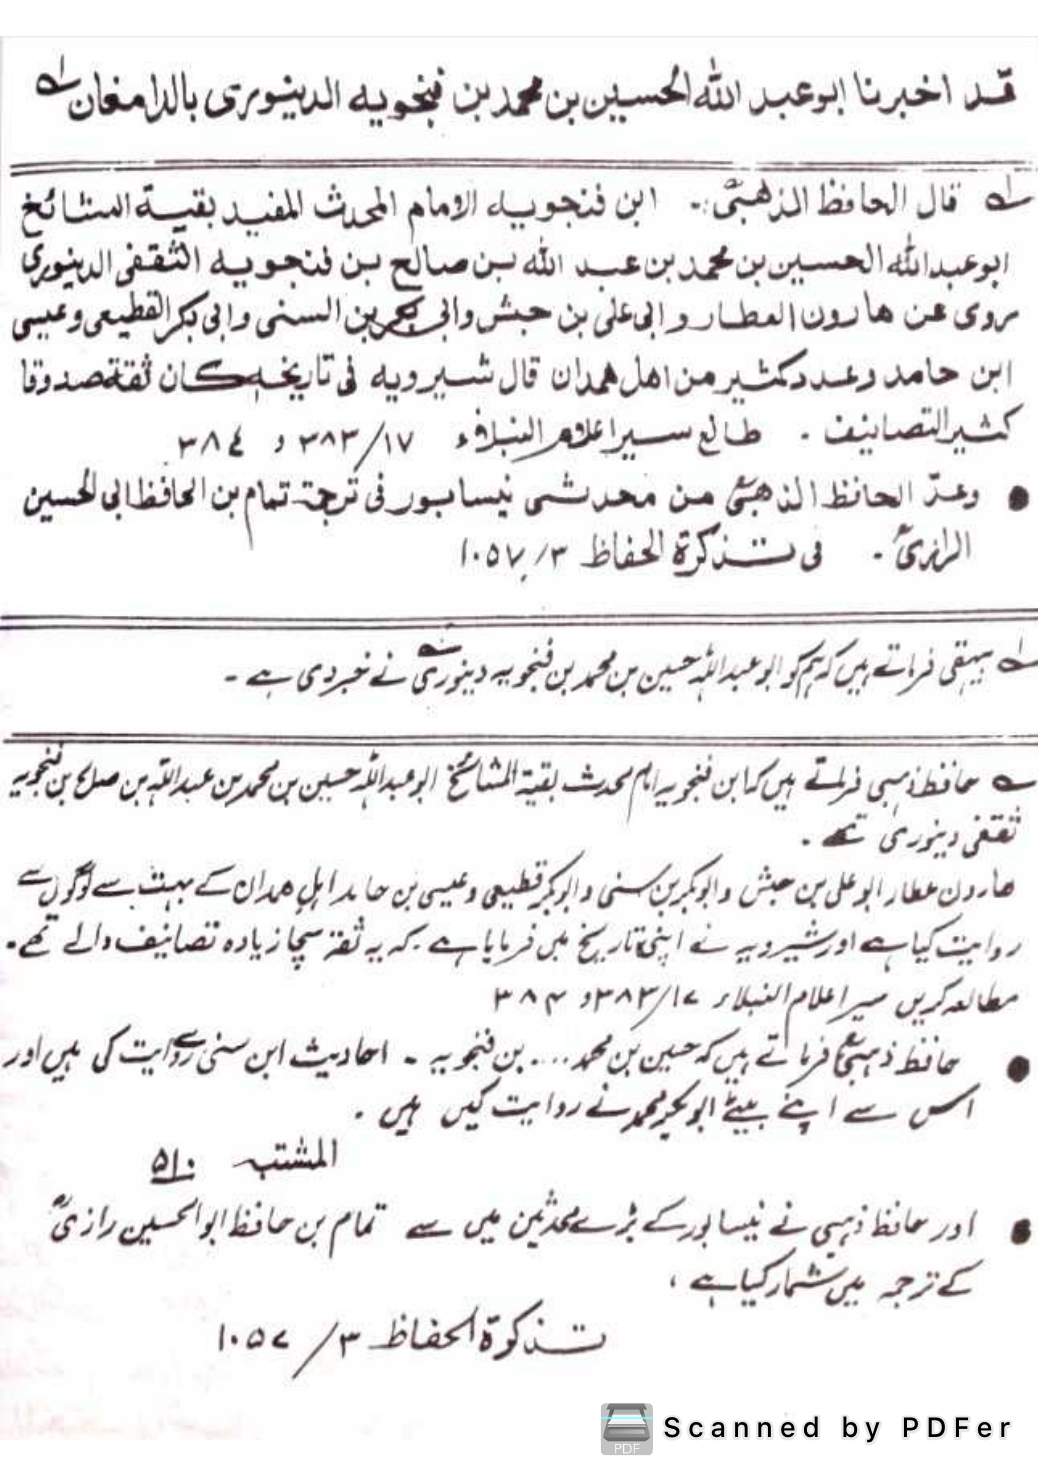 قد اخبرنا ابو عبد الله الحسين بن محمد بن فنجويه الدينورى بالدامغان ؎۱
؎۱ قال الحافظ الذهبىؒ:- ابن فنجويه الامام المحدث المفيد بقية المشائخ
ابو عبد الله الحسين بن محمد بن عبد الله بن صالح بن فنجويه الثقفى الدينورى
روى عن هارون العطار و ابى على بن حبش وابى بكر بن السنى وابى بكر القطيعى وعيسى
ابن حامد وعدد كثير من اهل همدان قال شيرويه فى تاريخه كان ثقة صدوقا
كثير التصانيف . طالع سير اعلام النبلاء ۳۸۳/۱۷ و ۳۸٤
● وعدّ الحافظ الذهبىؒ من محدثى نيسابور فى ترجمة تمام بن الحافظ ابى الحسين
الرازىؒ - فى تذكرة الحفاظ ۳/ ۱۰۵۷
؎۱ بیہقی فرماتے ہیں کہ ہم کو ابو عبد اللہ حسین بن محمد بن فنجویہ دینوریؒ نے خبر دی ہے -
؎ حافظ ذہبی فرماتے ہیں کہ ابن فنجویہ امام محدث بقیۃ المشائخ ابو عبد اللہ حسین بن محمد بن عبد اللہ بن صالح بن فنجویہ
ثقفی دینوری تھے .
ھارون عطار ابو علی بن حبش و ابوبکر بن سنی و ابوبکر قطیعی و عیسی بن حامد اہل ھمدان کے بہت سے لوگوں سے
روایت کیا ہے اور شیرویہ نے اپنی تاریخ میں فرمایا ہے کہ یہ ثقۃ سچا زیادہ تصانیف والے تھے .
مطالعہ کریں سیر اعلام النبلاء ۳۸۳/۱۷ و ۳۸۴
● حافظ ذہبیؒ فرماتے ہیں کہ حسین بن محمد .... بن فنجویہ - احادیث ابن سنی سے روایت کی ہیں اور
اس سے اپنے بیٹے ابوبکر محمد نے روایت کیں ہیں .
المشتبہ ۵۱۰
● اور حافظ ذہبی نے نیسابور کے بڑے محدثین میں سے تمام بن حافظ ابو الحسین رازیؒ
کے ترجمہ میں شمار کیا ہے ،
تذکرۃ الحفاظ ۳/ ۱۰۵۷
Scanned by PDFer
PDF